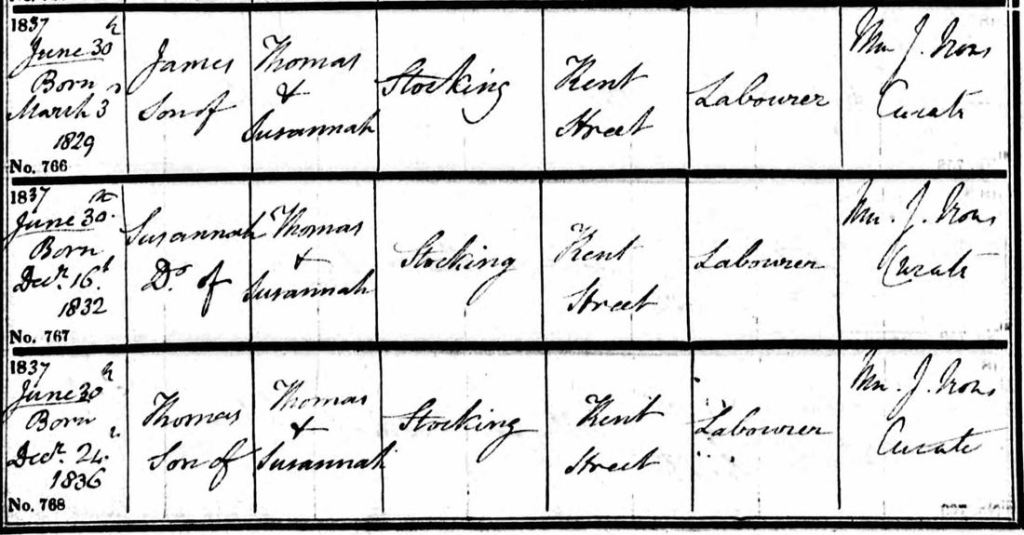 1837
June 30th
Born
March 3d
1829
No. 766
James
Son of
Thomas
&
Susannah
Stocking
Kent
Street
Labourer
Wm. J. Irons
Curate
1837
June 30th
Born
Decr. 16th
1832
No. 767
Susannah
Do. of
Thomas
&
Susannah
Stocking
Kent
Street
Labourer
Wm. J. Irons
Curate
1837
June 30th
Born
Decr. 24
1836
No. 768
Thomas
Son of
Thomas
&
Susannah
Stocking
Kent
Street
Labourer
Wm. J. Irons
Curate